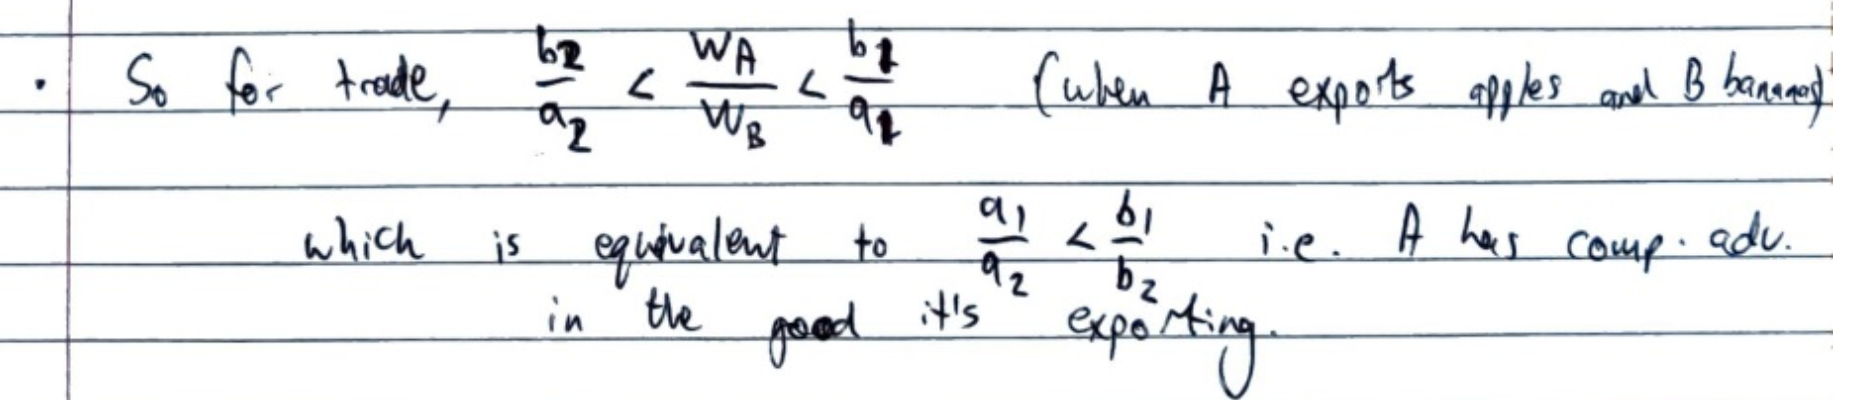 · So for trade, b2/a2 < WA/WB < b1/a1 (when A exports apples and B bananas)
which is equivalent to a1/a2 < b1/b2 i.e. A has comp. adv.
in the good it's exporting.